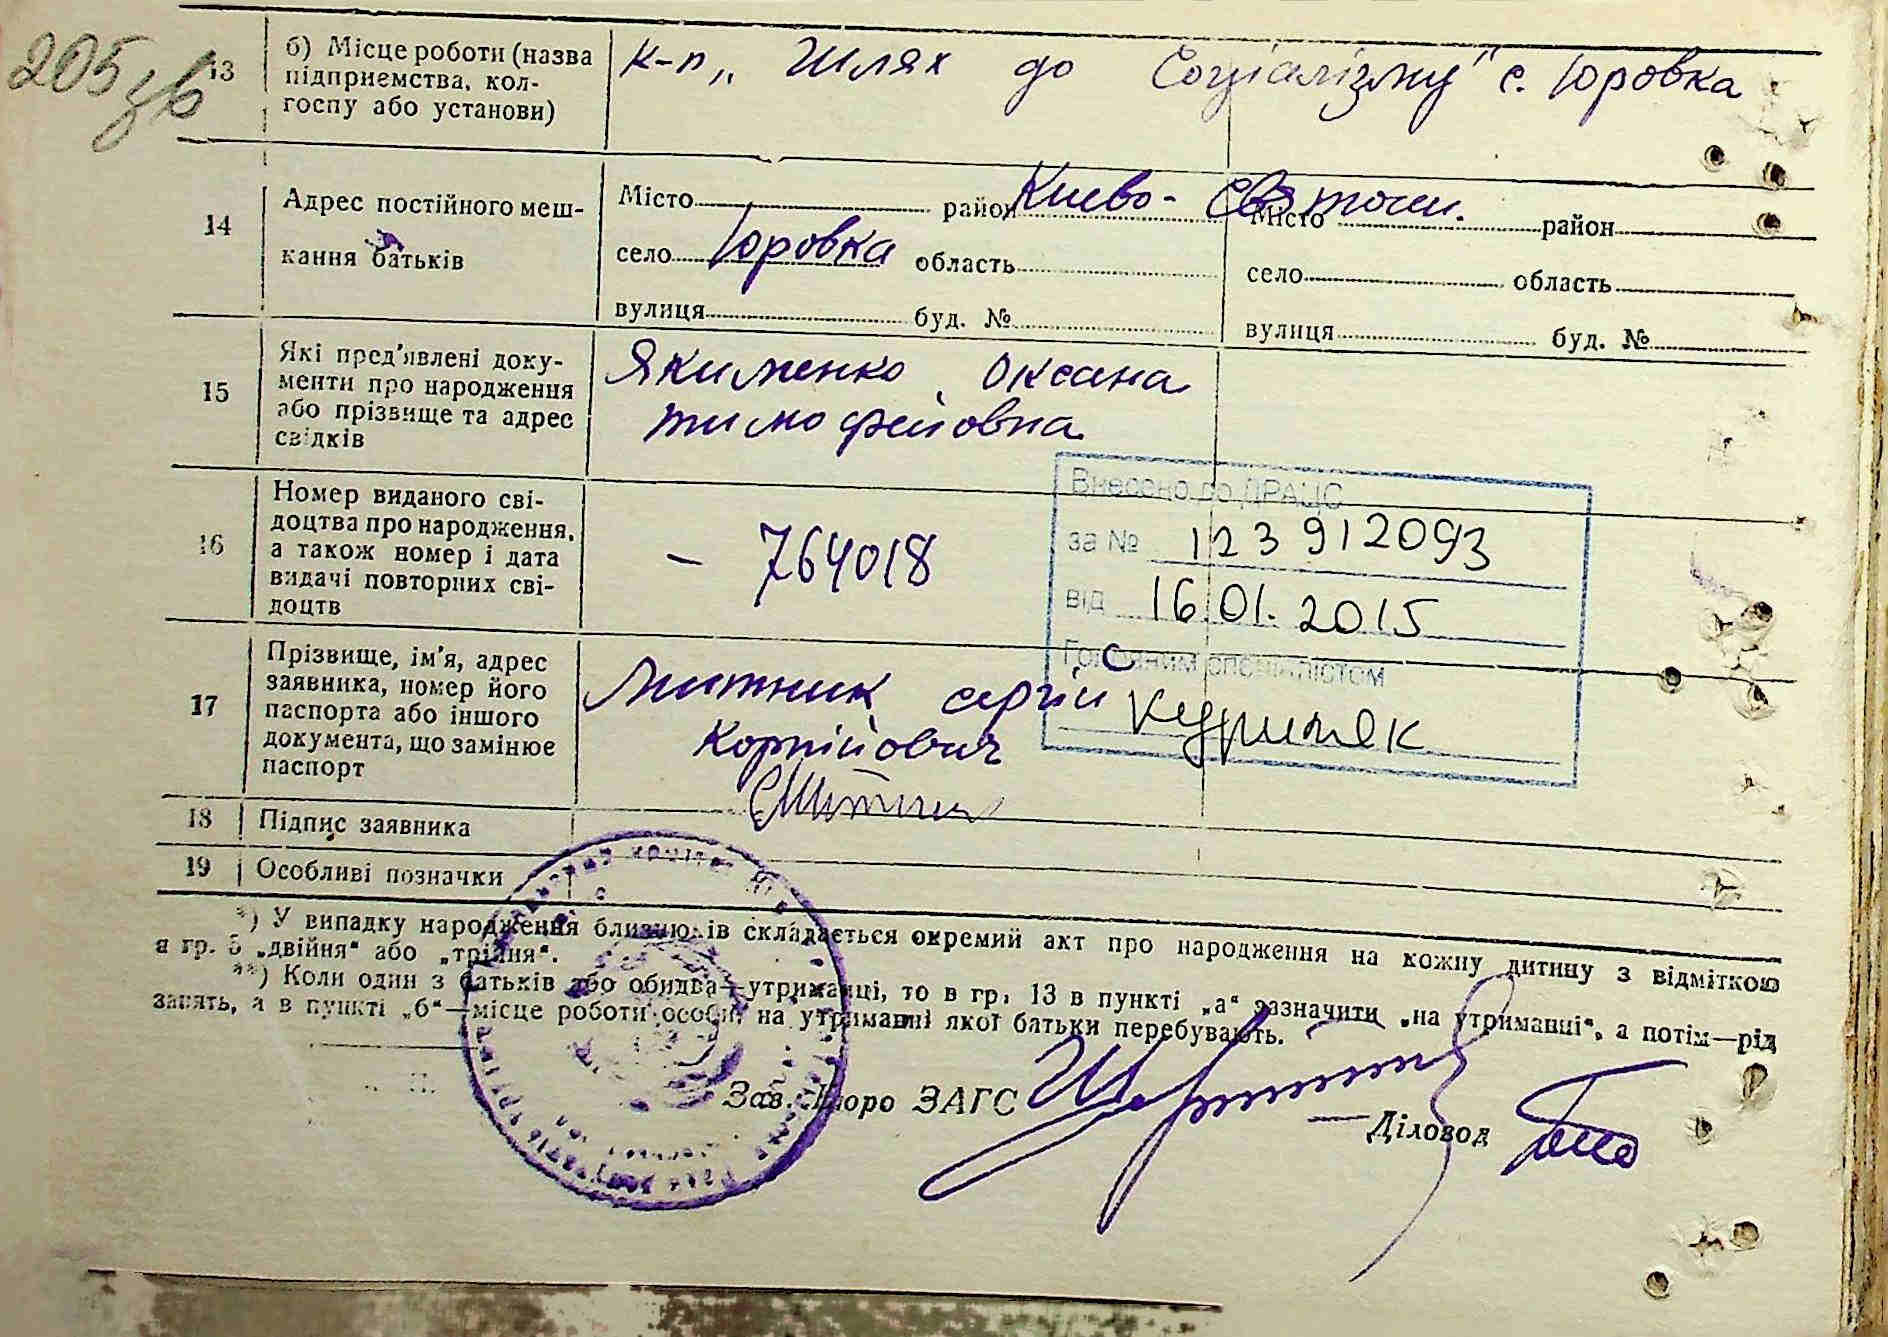 205 зв
13 б) Місце роботи (назва підприємства, колгоспу або установи) к-п „Шлях до Соціалізму" с. Юровка
14 Адрес постійного мешкання батьків
Місто район Києво-Святош. Місто район
село Юровка область село область
вулиця буд. № вулиця буд. №
15 Які пред'явлені документи про народження або прізвище та адрес свідків Якименко Оксана
тимофейовна
16 Номер виданого свідоцтва про народження, а також номер і дата видачі повторних свідоцтв – 764018
Внесено до ДРАЦС
за № 123 912093
від 16.01.2015
Головним спеціалістом
17 Прізвище, ім'я, адрес заявника, номер його паспорта або іншого документа, що замінює паспорт Митник Сергій
Корнійович
18 Підпис заявника
19 Особливі позначки
*) У випадку народження близнюків складається окремий акт про народження на кожну дитину з відміткою
в гр. 5 „двійня" або „трійня".
**) Коли один з батьків або обидва—утриманці, то в гр. 13 в пункті „а" зазначити „на утриманні", а потім—рід
занять, а в пункті „б"—місце роботи особи, на утриманні якої батьки перебувають.
Зав. Бюро ЗАГС
Діловод